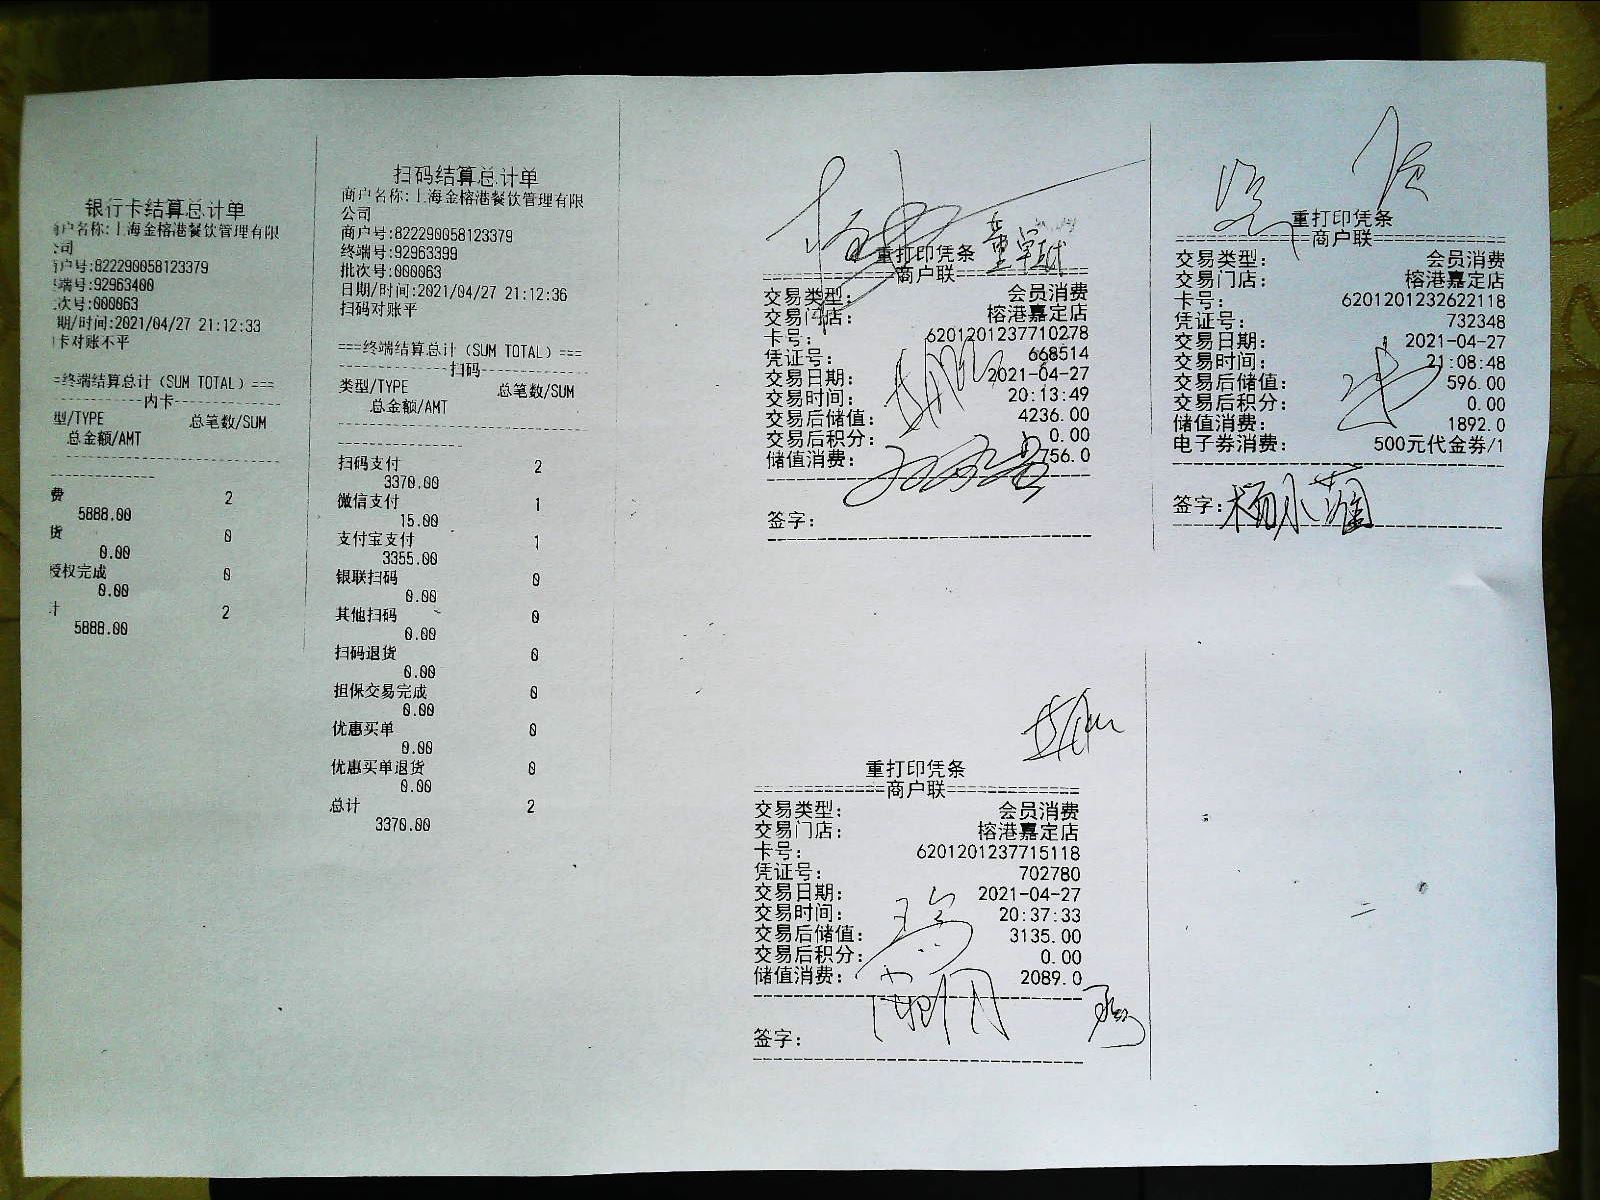 银行卡结算总计单
户名称:上海金榕港餐饮管理有限
公司
户号:822290058123379
端号:92963400
次号:000063
期/时间:2021/04/27 21:12:33
卡对账不平
=终端结算总计（SUM TOTAL）===
----------内卡----------
型/TYPE 总笔数/SUM
总金额/AMT
费 2
5888.00
货 0
0.00
授权完成 0
0.00
计 2
5888.00
扫码结算总计单
商户名称:上海金榕港餐饮管理有限
公司
商户号:822290058123379
终端号:92963399
批次号:000063
日期/时间:2021/04/27 21:12:36
扫码对账平
===终端结算总计（SUM TOTAL）===
----------扫码----------
类型/TYPE 总笔数/SUM
总金额/AMT
扫码支付 2
3370.00
微信支付 1
15.00
支付宝支付 1
3355.00
银联扫码 0
0.00
其他扫码 0
0.00
扫码退货 0
0.00
担保交易完成 0
0.00
优惠买单 0
0.00
优惠买单退货 0
0.00
总计 2
3370.00
重打印凭条
商户联
交易类型: 会员消费
交易门店: 榕港嘉定店
卡号: 6201201237710278
凭证号: 668514
交易日期: 2021-04-27
交易时间: 20:13:49
交易后储值: 4236.00
交易后积分: 0.00
储值消费: 756.0
签字:
重打印凭条
商户联
交易类型: 会员消费
交易门店: 榕港嘉定店
卡号: 6201201232622118
凭证号: 732348
交易日期: 2021-04-27
交易时间: 21:08:48
交易后储值: 596.00
交易后积分: 0.00
储值消费: 1892.0
电子券消费: 500元代金券/1
签字:
重打印凭条
商户联
交易类型: 会员消费
交易门店: 榕港嘉定店
卡号: 6201201237715118
凭证号: 702780
交易日期: 2021-04-27
交易时间: 20:37:33
交易后储值: 3135.00
交易后积分: 0.00
储值消费: 2089.0
签字: